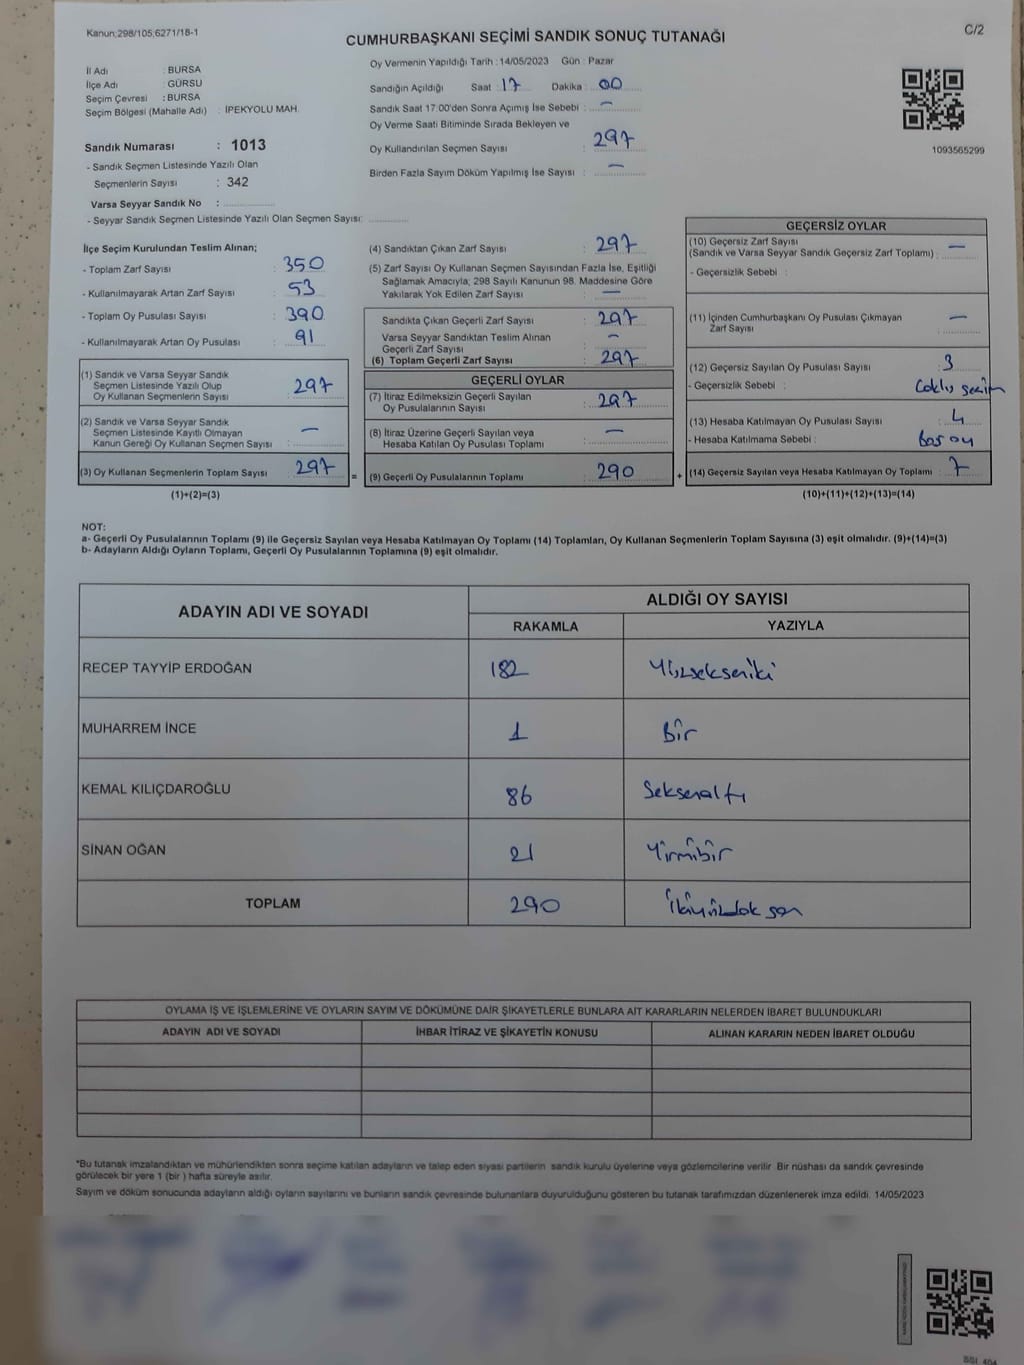 Kanun;298/105;6271/18-1
C/2
CUMHURBAŞKANI SEÇİMİ SANDIK SONUÇ TUTANAĞI
İl Adı : BURSA
İlçe Adı : GÜRSU
Seçim Çevresi : BURSA
Seçim Bölgesi (Mahalle Adı) : İPEKYOLU MAH.
Sandık Numarası : 1013
- Sandık Seçmen Listesinde Yazılı Olan
Seçmenlerin Sayısı : 342
Varsa Seyyar Sandık No :
- Seyyar Sandık Seçmen Listesinde Yazılı Olan Seçmen Sayısı:
Oy Vermenin Yapıldığı Tarih : 14/05/2023 Gün : Pazar
Sandığın Açıldığı Saat 17 Dakika 00
Sandık Saat 17:00'den Sonra Açımış İse Sebebi : —
Oy Verme Saati Bitiminde Sırada Bekleyen ve
Oy Kullandırılan Seçmen Sayısı : 297
Birden Fazla Sayım Döküm Yapılmış İse Sayısı : —
1093565299
İlçe Seçim Kurulundan Teslim Alınan;
- Toplam Zarf Sayısı : 350
- Kullanılmayarak Artan Zarf Sayısı : 53
- Toplam Oy Pusulası Sayısı : 390
- Kullanılmayarak Artan Oy Pusulası : 91
(1) Sandık ve Varsa Seyyar Sandık
Seçmen Listesinde Yazılı Olup
Oy Kullanan Seçmenlerin Sayısı : 297
(2) Sandık ve Varsa Seyyar Sandık
Seçmen Listesinde Kayıtlı Olmayan
Kanun Gereği Oy Kullanan Seçmen Sayısı : —
(3) Oy Kullanan Seçmenlerin Toplam Sayısı : 297
(1)+(2)=(3)
=
(4) Sandıktan Çıkan Zarf Sayısı : 297
(5) Zarf Sayısı Oy Kullanan Seçmen Sayısından Fazla İse, Eşitliği
Sağlamak Amacıyla; 298 Sayılı Kanunun 98. Maddesine Göre
Yakılarak Yok Edilen Zarf Sayısı : —
Sandıkta Çıkan Geçerli Zarf Sayısı : 297
Varsa Seyyar Sandıktan Teslim Alınan
Geçerli Zarf Sayısı : —
(6) Toplam Geçerli Zarf Sayısı : 297
GEÇERLİ OYLAR
(7) İtiraz Edilmeksizin Geçerli Sayılan
Oy Pusulalarının Sayısı : 297
(8) İtiraz Üzerine Geçerli Sayılan veya
Hesaba Katılan Oy Pusulası Toplamı : —
(9) Geçerli Oy Pusulalarının Toplamı : 290
+
GEÇERSİZ OYLAR
(10) Geçersiz Zarf Sayısı
(Sandık ve Varsa Seyyar Sandık Geçersiz Zarf Toplamı) : —
- Geçersizlik Sebebi :
(11) İçinden Cumhurbaşkanı Oy Pusulası Çıkmayan
Zarf Sayısı : —
(12) Geçersiz Sayılan Oy Pusulası Sayısı : 3
- Geçersizlik Sebebi : Coklu secim
(13) Hesaba Katılmayan Oy Pusulası Sayısı : 4
- Hesaba Katılmama Sebebi : Bos oy
(14) Geçersiz Sayılan veya Hesaba Katılmayan Oy Toplamı : 7
(10)+(11)+(12)+(13)=(14)
NOT:
a- Geçerli Oy Pusulalarının Toplamı (9) ile Geçersiz Sayılan veya Hesaba Katılmayan Oy Toplamı (14) Toplamları, Oy Kullanan Seçmenlerin Toplam Sayısına (3) eşit olmalıdır. (9)+(14)=(3)
b- Adayların Aldığı Oyların Toplamı, Geçerli Oy Pusulalarının Toplamına (9) eşit olmalıdır.
ADAYIN ADI VE SOYADI ALDIĞI OY SAYISI
RAKAMLA YAZIYLA
RECEP TAYYİP ERDOĞAN 182 Yüzsekseniki
MUHARREM İNCE 1 Bir
KEMAL KILIÇDAROĞLU 86 Seksenaltı
SİNAN OĞAN 21 Yirmibir
TOPLAM 290 İkiyüzdoksan
OYLAMA İŞ VE İŞLEMLERİNE VE OYLARIN SAYIM VE DÖKÜMÜNE DAİR ŞİKAYETLERLE BUNLARA AİT KARARLARIN NELERDEN İBARET BULUNDUKLARI
ADAYIN ADI VE SOYADI İHBAR İTİRAZ VE ŞİKAYETİN KONUSU ALINAN KARARIN NEDEN İBARET OLDUĞU
*Bu tutanak imzalandıktan ve mühürlendikten sonra seçime katılan adayların ve talep eden siyasi partilerin sandık kurulu üyelerine veya gözlemcilerine verilir. Bir nüshası da sandık çevresinde
görülecek bir yere 1 (bir ) hafta süreyle asılır.
Sayım ve döküm sonucunda adayların aldığı oyların sayılarını ve bunların sandık çevresinde bulunanlara duyurulduğunu gösteren bu tutanak tarafımızdan düzenlenerek imza edildi. 14/05/2023